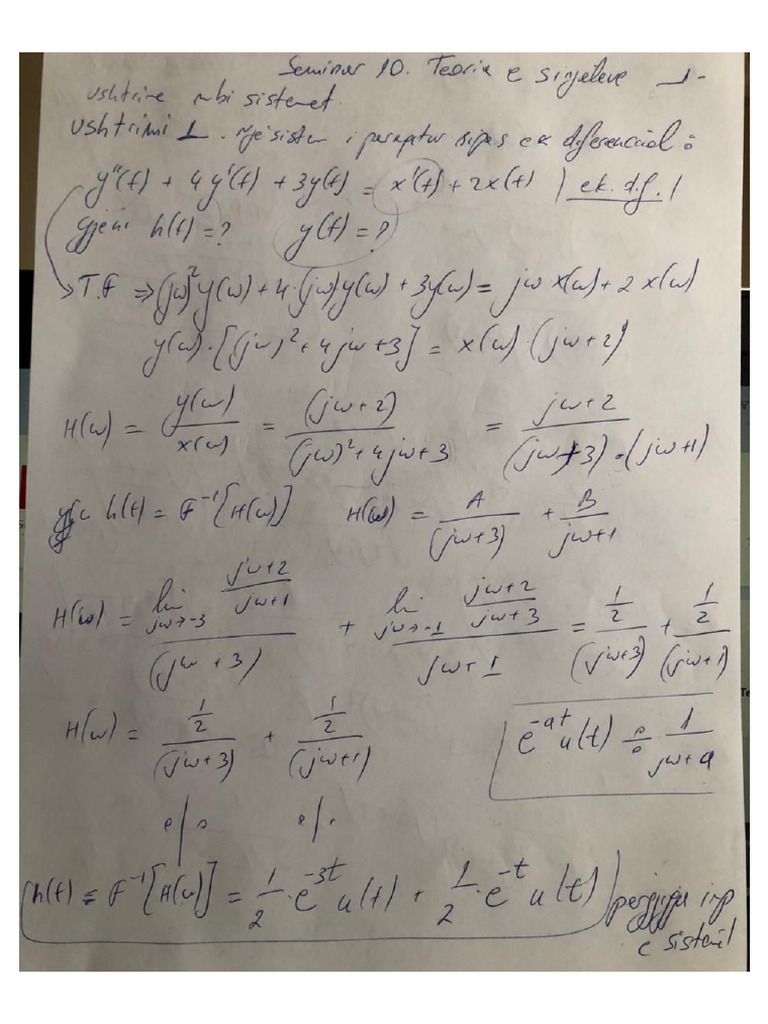 Seminar 10. Teoria e sinjaleve -1-
ushtrime mbi sistemet.
Ushtrimi 1. Një sistem i paraqitur sipas ek diferencial:
y''(t) + 4y'(t) + 3y(t) = x'(t) + 2x(t) | ek. d.f. |
gjeni h(t) = ? y(t) = ?
T.F ⇒ (jω)²y(ω) + 4·(jω)y(ω) + 3y(ω) = jω x(ω) + 2 x(ω)
y(ω)·[(jω)² + 4jω + 3] = x(ω)·(jω+2)
H(ω) = y(ω)/x(ω) = (jω+2)/((jω)² + 4jω + 3) = (jω+2)/((jω+3)·(jω+1))
h(t) = F⁻¹[H(ω)] H(ω) = A/(jω+3) + B/(jω+1)
H(ω) = (lim jω→-3 (jω+2)/(jω+1))/(jω+3) + (lim jω→-1 (jω+2)/(jω+3))/(jω+1) = (1/2)/(jω+3) + (1/2)/(jω+1)
H(ω) = (1/2)/(jω+3) + (1/2)/(jω+1) e^(-at) u(t) ≓ 1/(jω+a)
h(t) = F⁻¹[H(ω)] = 1/2·e^(-3t) u(t) + 1/2·e^(-t) u(t) përgjigja imp
e sistemit